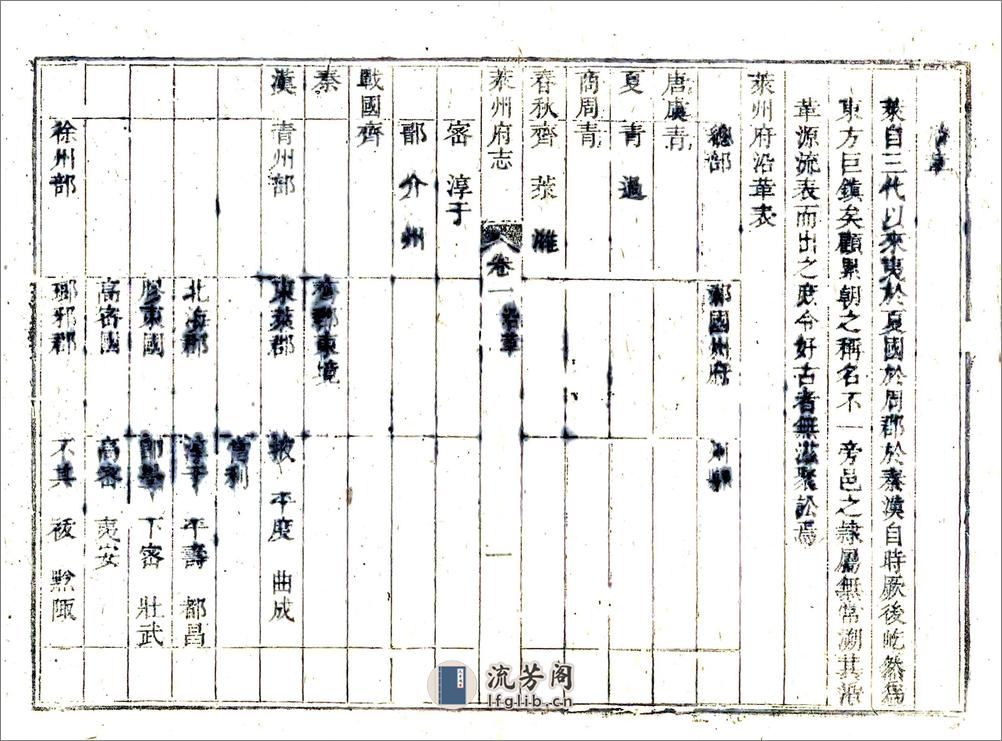 沿革
萊自三代以來夷於夏國於周郡於秦漢自時厥後屹然爲
東方巨鎮矣顧累朝之稱名不一旁邑之隸屬無常溯其沿
革源流表而出之庶令好古者無滋聚訟焉
萊州府沿革表
總部 郡國州府 州縣
唐虞 青
夏 青 過
商周 青
春秋 齊 萊 濰
萊州府志 卷一 沿革 一
密 淳于
鄑 介 州
戰國 齊
秦 齊郡東境
漢 青州部 東萊郡 掖 平度 曲成
當利
北海郡 淳于 平壽 都昌
膠東國 卽墨 下密 壯武
高密國 高密 夷安
徐州部 瑯邪郡 不其 祓 黔陬
流芳阁
lfglib.cn